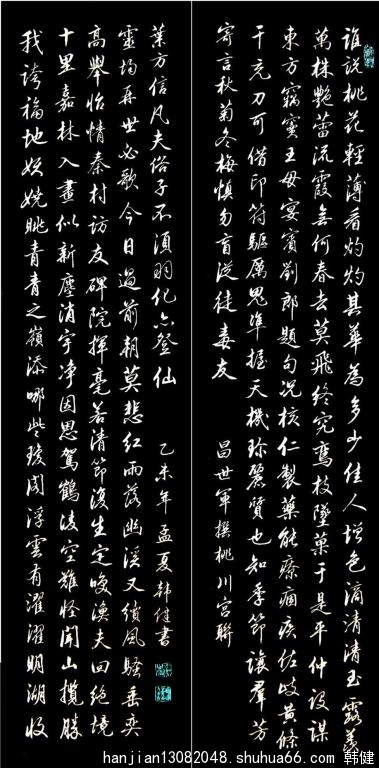 誰説桃花輕薄看灼灼其華為多少佳人增色滴清清玉露羨
萬株艷蕾流霞無何春去莫飛終究鸞枝墜葉于是平仲設謀
東方竊蜜王母宴賓劉郎題句況核仁製藥能療痼疾佐岐黃條
干充刀可借印符驅厲鬼準握天機珍麗質也知季節讓群芳
寄言秋菊冬梅慎勿盲從徒毒友
昌世軍撰桃川宮聯
我誇福地妖嬈眺青青之嶺添哪些閣浮雲有濯濯明湖收
十里嘉林入畫似新塵消宇凈因思駕鶴凌空難怪開山攬勝
高舉怡情秦村訪友碑院揮毫若清節復生定唆漁夫回絕境
靈均再世必歌今日過前朝莫悲紅雨落幽溪又續風騷垂奕
葉方信凡夫俗子不須羽化亦登仙
乙未年孟夏韩健書
hanjian13082048.shuhua66.com 韩健